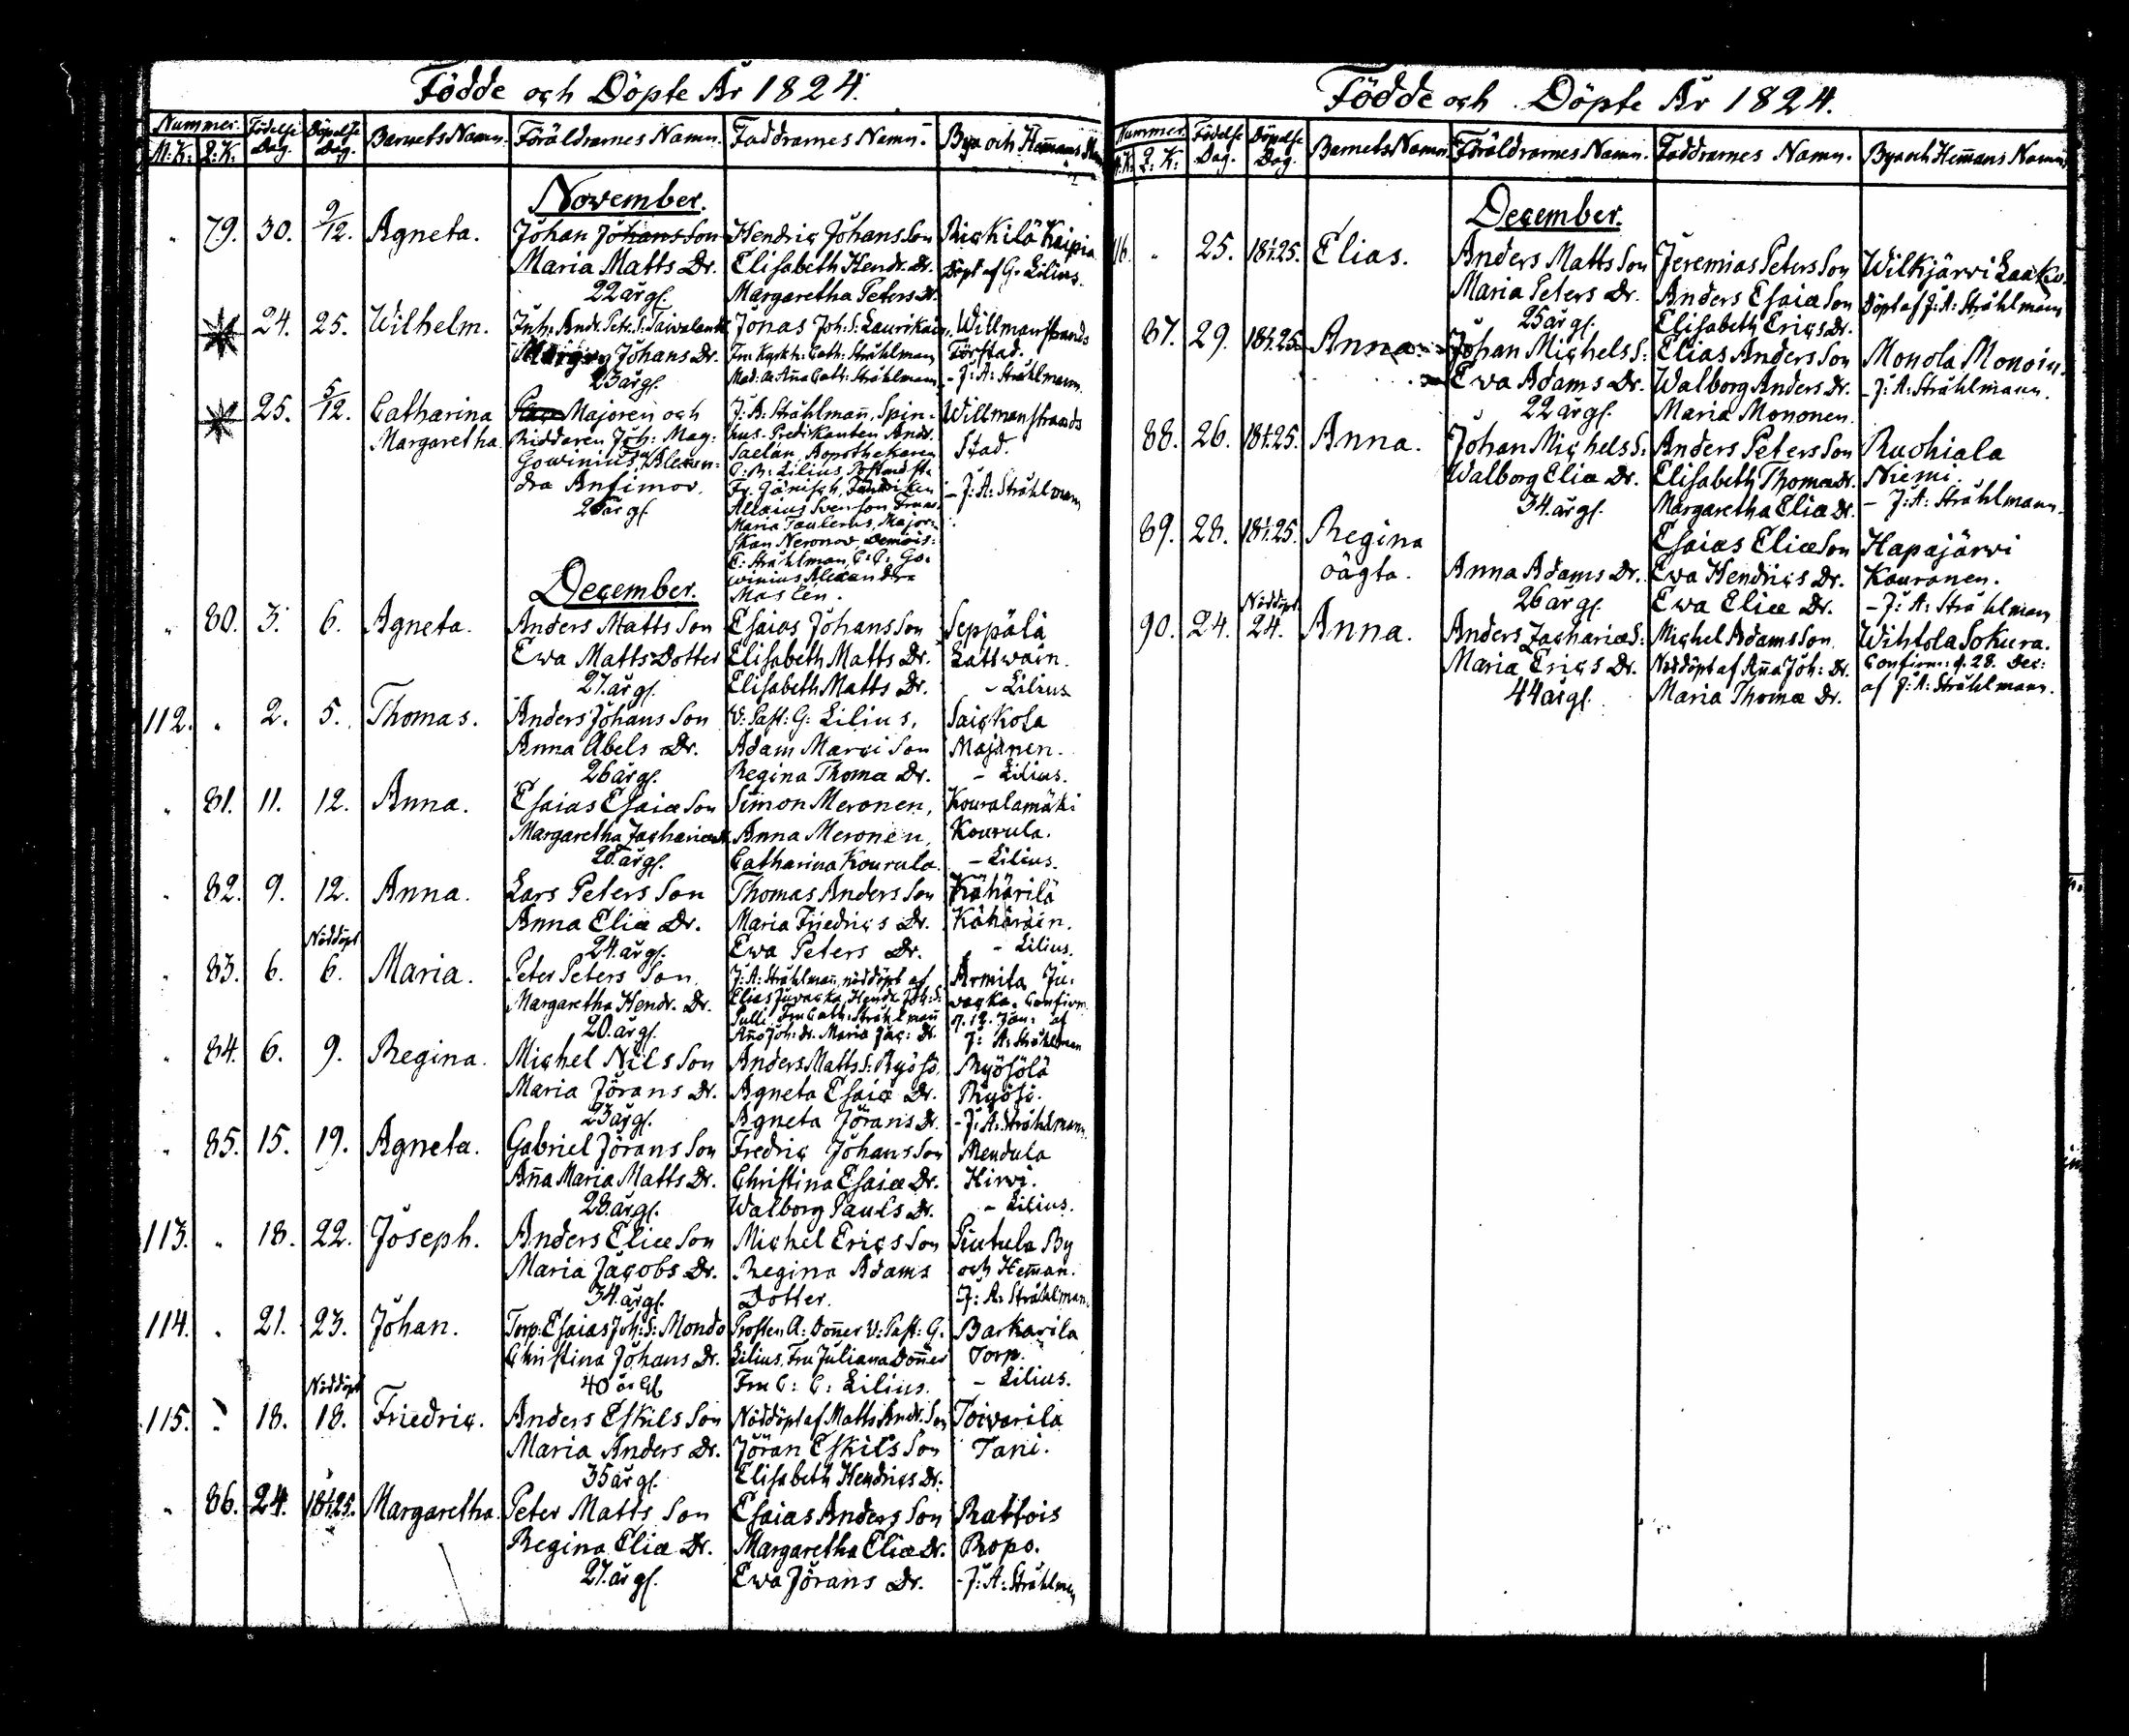 Födde och Döpte År 1824.
Nummer. Födelse Dag. Döpelse Dag. Barnets Namn. Föräldrarnes Namn. Faddrarnes Namn. Bya och Hemmans
M:K: Q:K:
November.
79. 30. 9/12. Agneta. Johan Johans Son Hendric Johans Son Rickilä Kaipia
Maria Matts Dr. Elisabeth Hendr. Dr. Döpt af G. Lilius.
22 år gl. Margaretha Peters Dr.
24. 25. Wilhelm. Inh: Andr. Petr. S: Jonas Joh: S: Willmanstrands
Johans Dr. Fru Cath: Stråhlman Förstad.
23 år gl. Mad: Aña Cath: Stråhlmann - J: A: Stråhlmann.
25. 5/12. Catharina Majoren och J: A: Stråhlmañ, Spin- Willmanstrands
Margaretha. Riddaren Joh: Mag: hus-Predikanten Andr. Stad.
Gowinius, Alexan- Saelan, Apothekaren
dra Anfimov. C: B: Lilius,
år gl. - J: A: Stråhlmann
Svenson, Fruar:
Maria Taulerus, Major-
skan Neronov, Demois:
C: Stråhlman, C: C: Go-
winius Alexandra
December. Maslen.
80. 3. 6. Agneta. Anders Matts Son Esaias Johans Son Seppälä
Ewa Matts Dotter Elisabeth Matts Dr. Lattwain.
27. år gl. Elisabeth Matts Dr. - Lilius
112. 2. 5. Thomas. Anders Johans Son V: Past: G: Lilius, Saickola
Anna Abels Dr. Adam Marci Son Majanen.
26 år gl. Regina Thomæ Dr. - Lilius.
81. 11. 12. Anna. Esaias Esaiæ Son Simon Meronen, Kouralamäki
Margaretha Zachariæ Dr. Anna Meronen, Kourula.
28. år gl. Catharina Kourula. - Lilius.
82. 9. 12. Anna. Lars Peters Son Thomas Anders Son Kähärilä
Anna Eliæ Dr. Maria Friedrics Dr. Kähäräin.
24. år gl. Ewa Peters Dr. - Lilius.
Nöddöpt
83. 6. 6. Maria. Peter Peters Son. J: A: Stråhlmañ, nöddöpt af Armila Ju-
Margaretha Hendr. Dr. Elias Juvacka, Hendr. Joh: S: vacka. Confirm.
20. år gl. Pulli, Fru Cath: Stråhlmañ d. 12. Jan: af
Aña Joh: Dr. Maria Jac: Dr. J: A: Stråhlman
84. 6. 9. Regina. Michel Nils Son Anders Matts S: Ryösö, Ryösölä
Maria Jörans Dr. Agneta Esaiæ Dr. Ryösö.
23 år gl. Agneta Jörans Dr. - J: A: Stråhlmann.
85. 15. 19. Agneta. Gabriel Jörans Son Fredric Johans Son Mendula
Aña Maria Matts Dr. Christina Esaiæ Dr. Hirvi.
28. år gl. Walborg Pauls Dr. - Lilius.
113. 18. 22. Joseph. Anders Eliæ Son Michel Erics Son Piutula By
Maria Jacobs Dr. Regina Adams och Heman.
34. år gl. Dotter. J: A: Stråhlman.
114. 21. 23. Johan. Torp: Esaias Joh: S: Mondo Prosten A: Doñer V: Past: G. Barkarila
Christina Johans Dr. Lilius, Fru Juliana Doñer Torp.
40 år gl. Fru C: C: Lilius. - Lilius.
Nöddöpt
115. 18. 18. Friedric. Anders Eskils Son Nöddöpt af Matts Andr. Son Toivarila
Maria Anders Dr. Jöran Eskils Son Tani.
35 år gl. Elisabeth Hendrics Dr.
86. 24. 18 1/1 25. Margaretha. Peter Matts Son Esaias Anders Son Rattois
Regina Eliæ Dr. Margaretha Eliæ Dr. Ropo.
27. år gl. Ewa Jörans Dr. - J: A: Stråhlman
Födde och Döpte År 1824.
Nummer. Födelse Dag. Döpelse Dag. Barnets Namn. Föräldrarnes Namn. Faddrarnes Namn. Bya och Hemans Namn
M:K: Q:K:
December.
116. 25. 18 1/1 25. Elias. Anders Matts Son Jeremias Peters Son Wilkjärvi Laako.
Maria Peters Dr. Anders Esaiæ Son Döpt af J: A: Stråhlmann
25 år gl. Elisabeth Erics Dr.
87. 29. 18 1/1 25. Anna. Johan Michels S: Elias Anders Son Monola Monoin.
Ewa Adams Dr. Walborg Anders Dr. - J: A: Stråhlmann.
22 år gl. Maria Mononen.
88. 26. 18 1/1 25. Anna. Johan Michels S: Anders Peters Son Ruohiala
Walborg Eliæ Dr. Elisabeth Thomæ Dr. Niemi.
34. år gl. Margaretha Eliæ Dr. - J: A: Stråhlmann.
89. 28. 18 1/1 25. Regina Esaias Eliæ Son Hapajärwi
oägta. Anna Adams Dr. Ewa Hendrics Dr. Kouronen.
26 år gl. Ewa Eliæ Dr. - J: A: Stråhlman
Nöddöpt
90. 24. 24. Anna. Anders Zachariæ S: Michel Adams Son Wihtola Sokura.
Maria Erics Dr. Nöddöpt af Aña Joh: Dr. Confirm: d. 28. Dec:
44 år gl. Maria Thomæ Dr. af J: A: Stråhlmann.